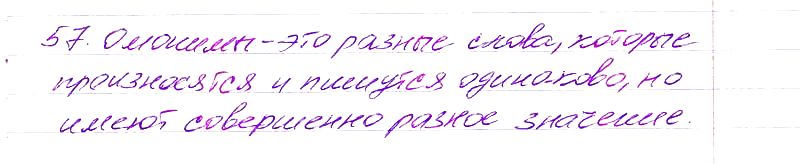 57. Омонимы - это разные слова, которые
произносятся и пишутся одинаково, но
имеют совершенно разное значение.